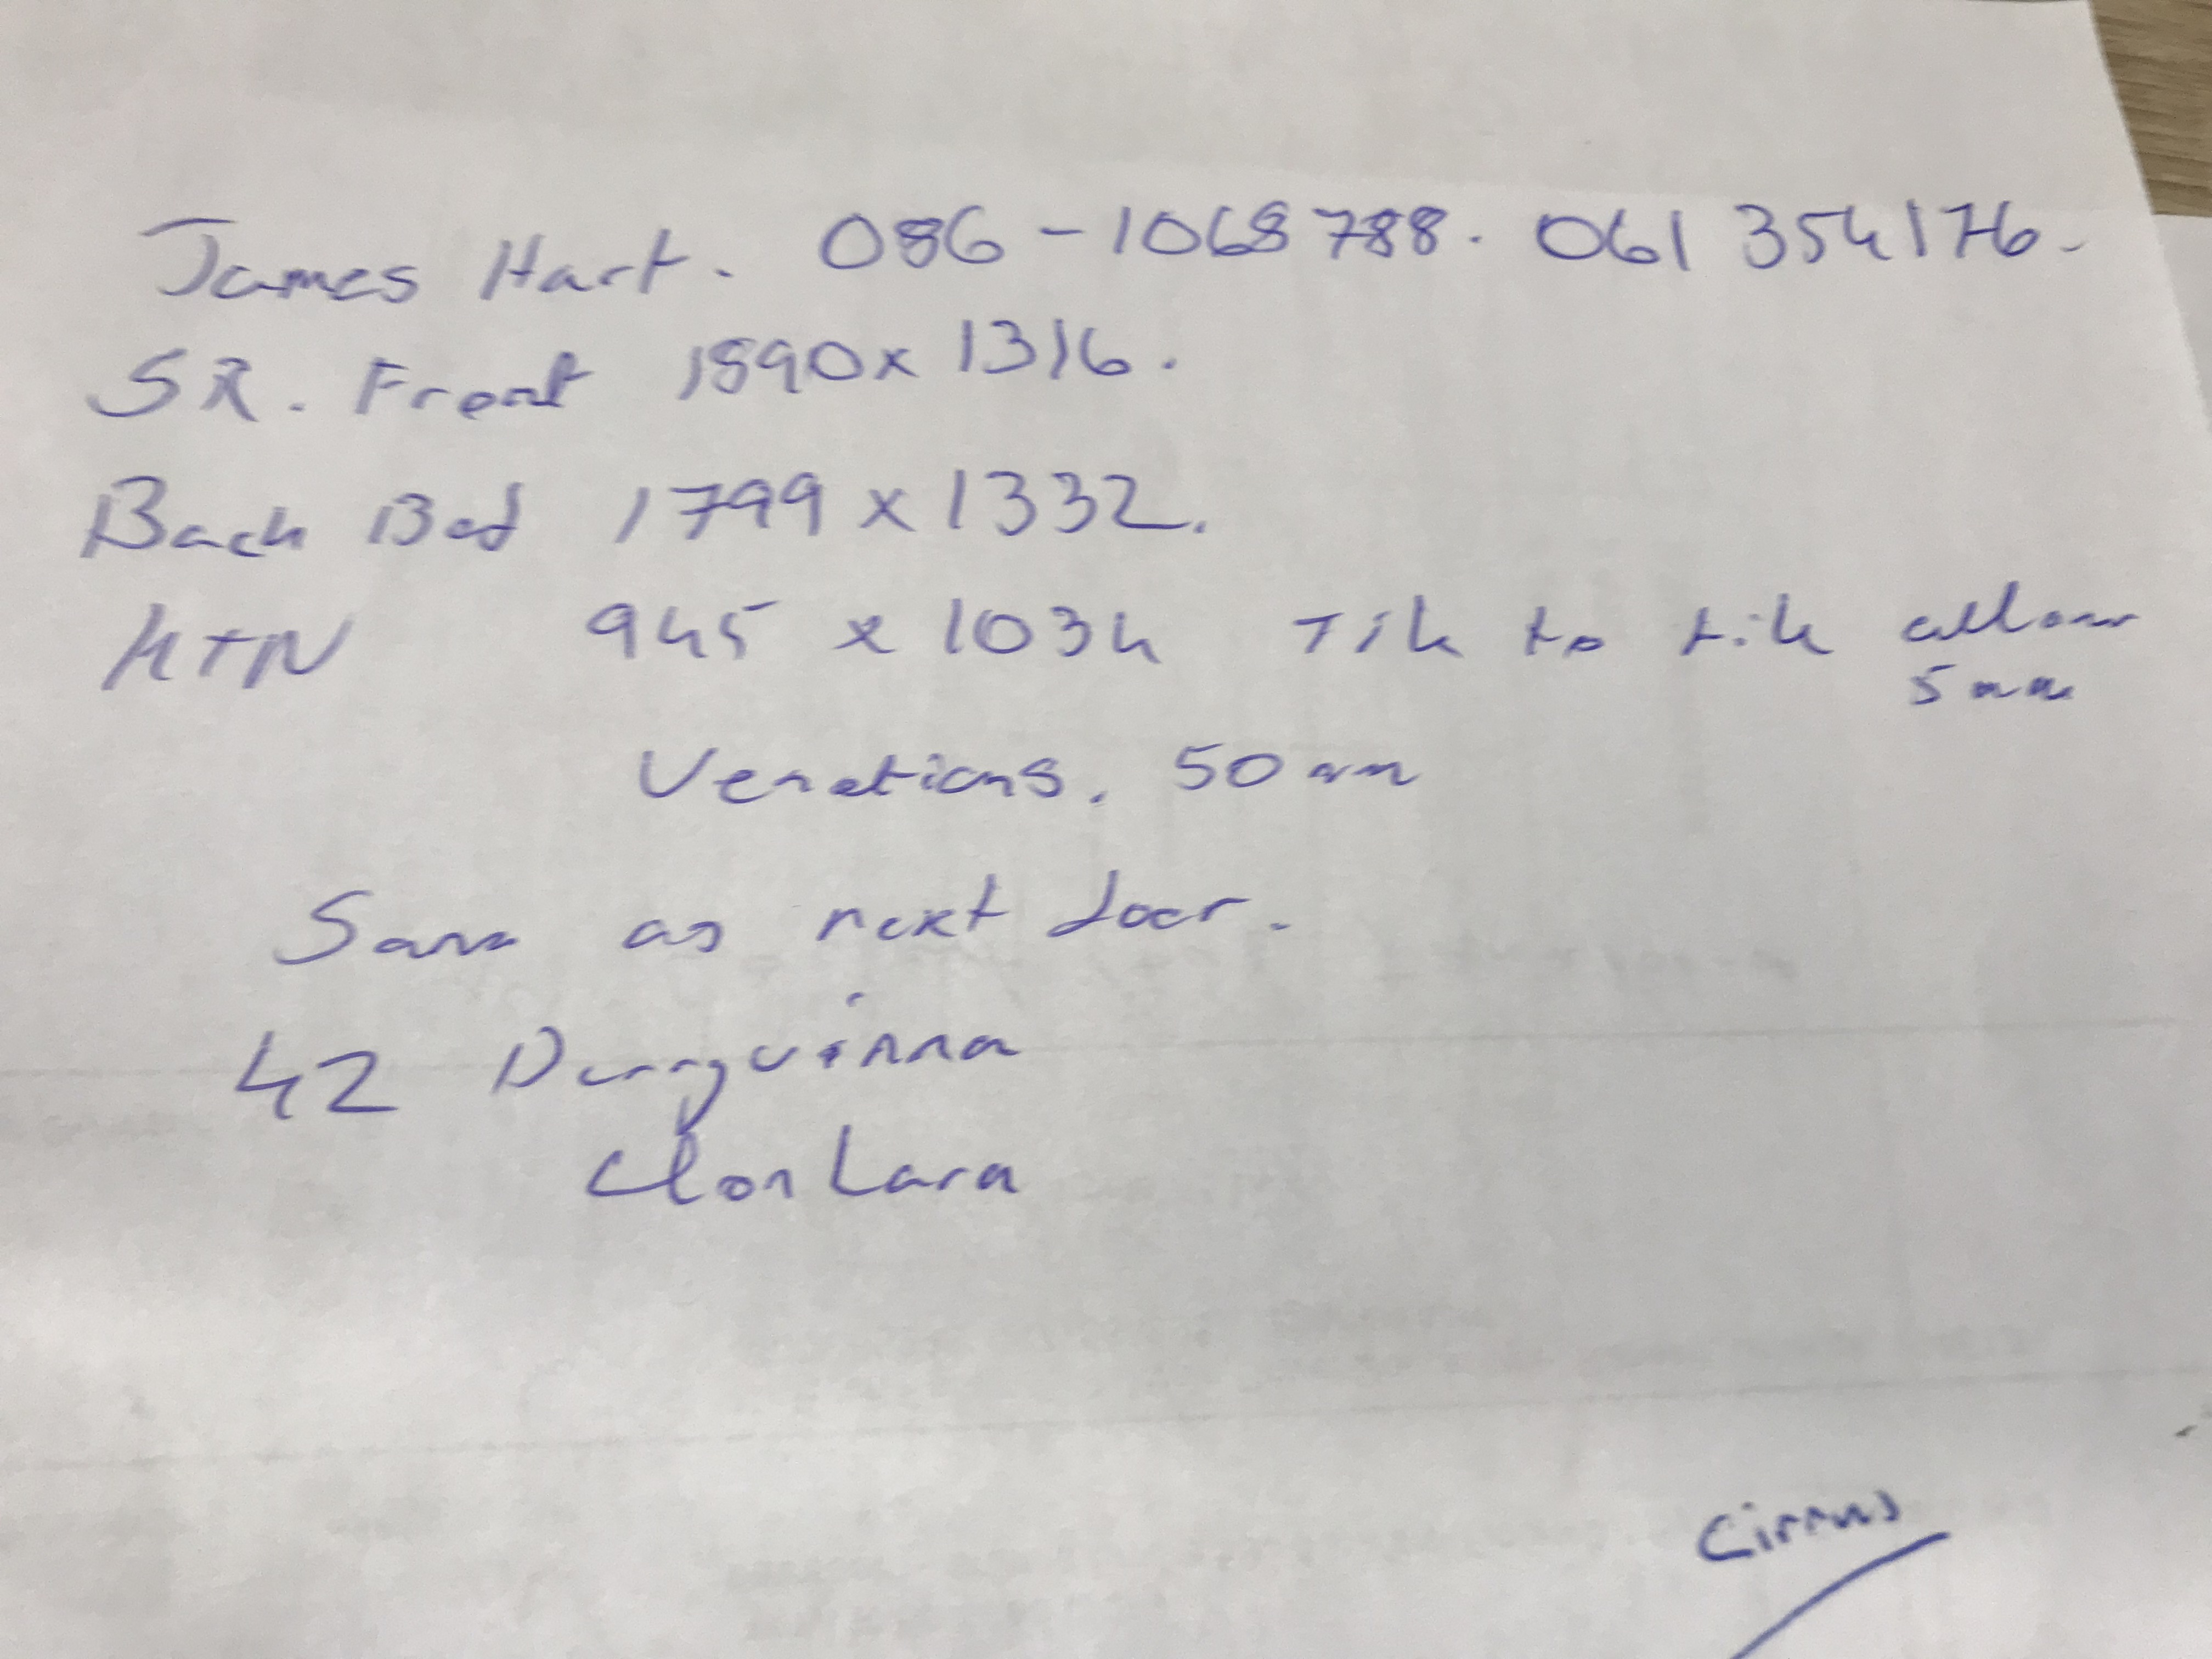 James Hart. 086-1068788. 061 354176.
SR. Front 1890x1316.
Back Bed 1799 x 1332.
KTN 945 x 1034 Tile to tile allow
5mm
Venetians. 50mm
Same as next door.
42 Derryvinna
ClonLara
Cirrus